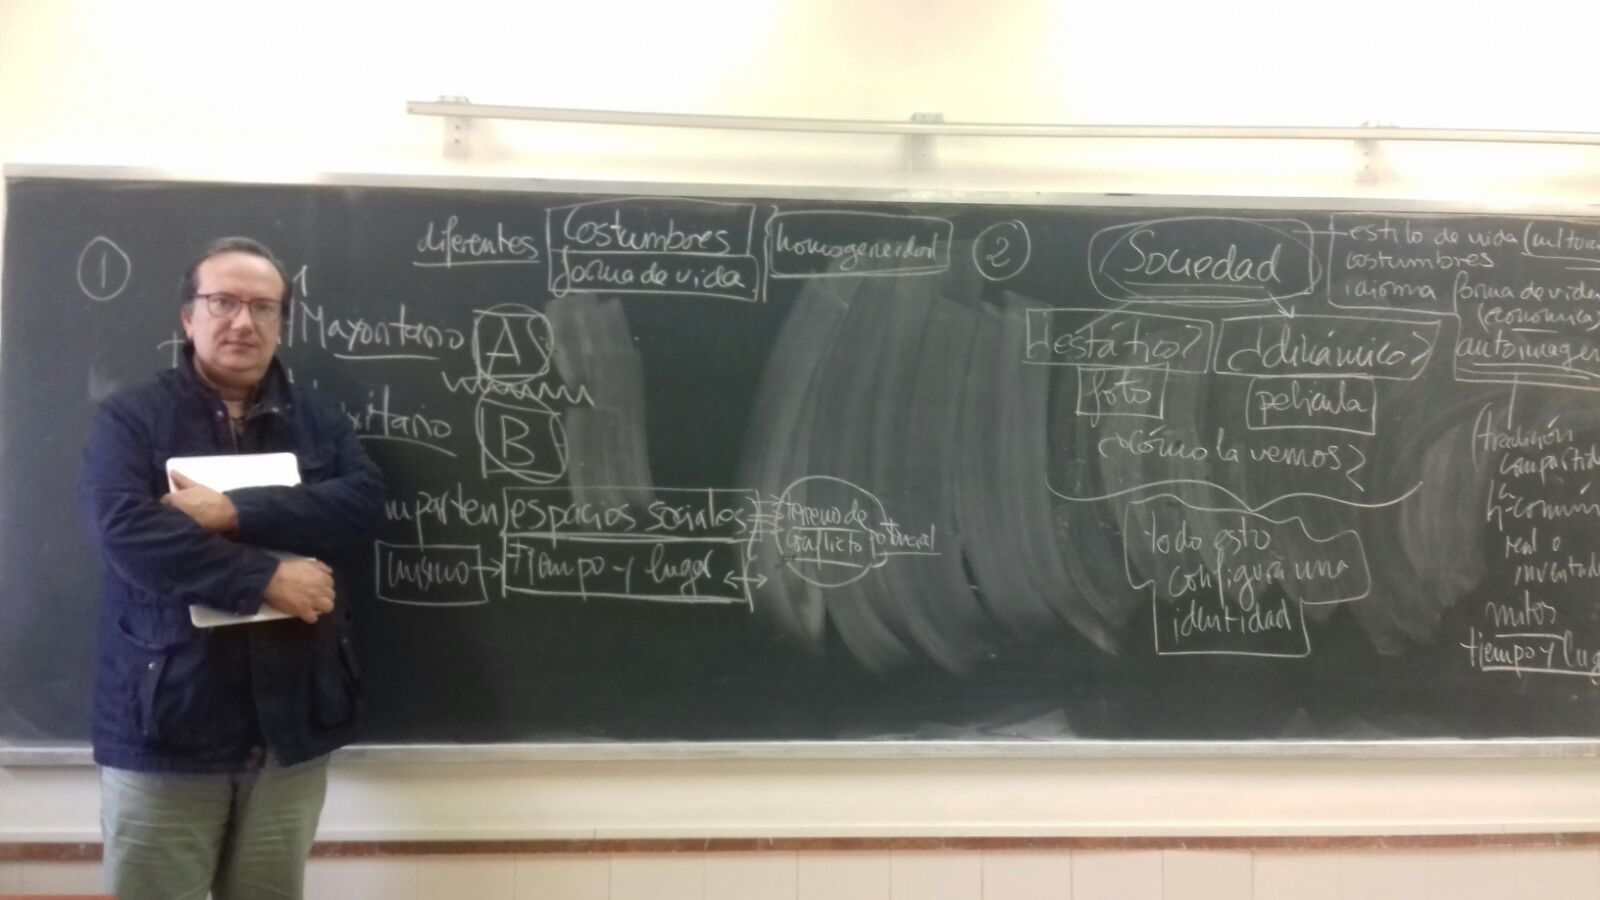 1
diferentes
Costumbres
forma de vida
homogeneidad
Mayoritario
A
B
espacios sociales
mismo
tiempo y lugar
terreno de
conflicto potencial
2
Sociedad
estilo de vida (cultura
costumbres
idioma
forma de vida
(económica)
autoimagen
¿estático?
¿dinámico?
foto
película
¿cómo la vemos?
todo esto
configura una
identidad
tradición
compartida
común
real o
inventada
mitos
tiempo y lug